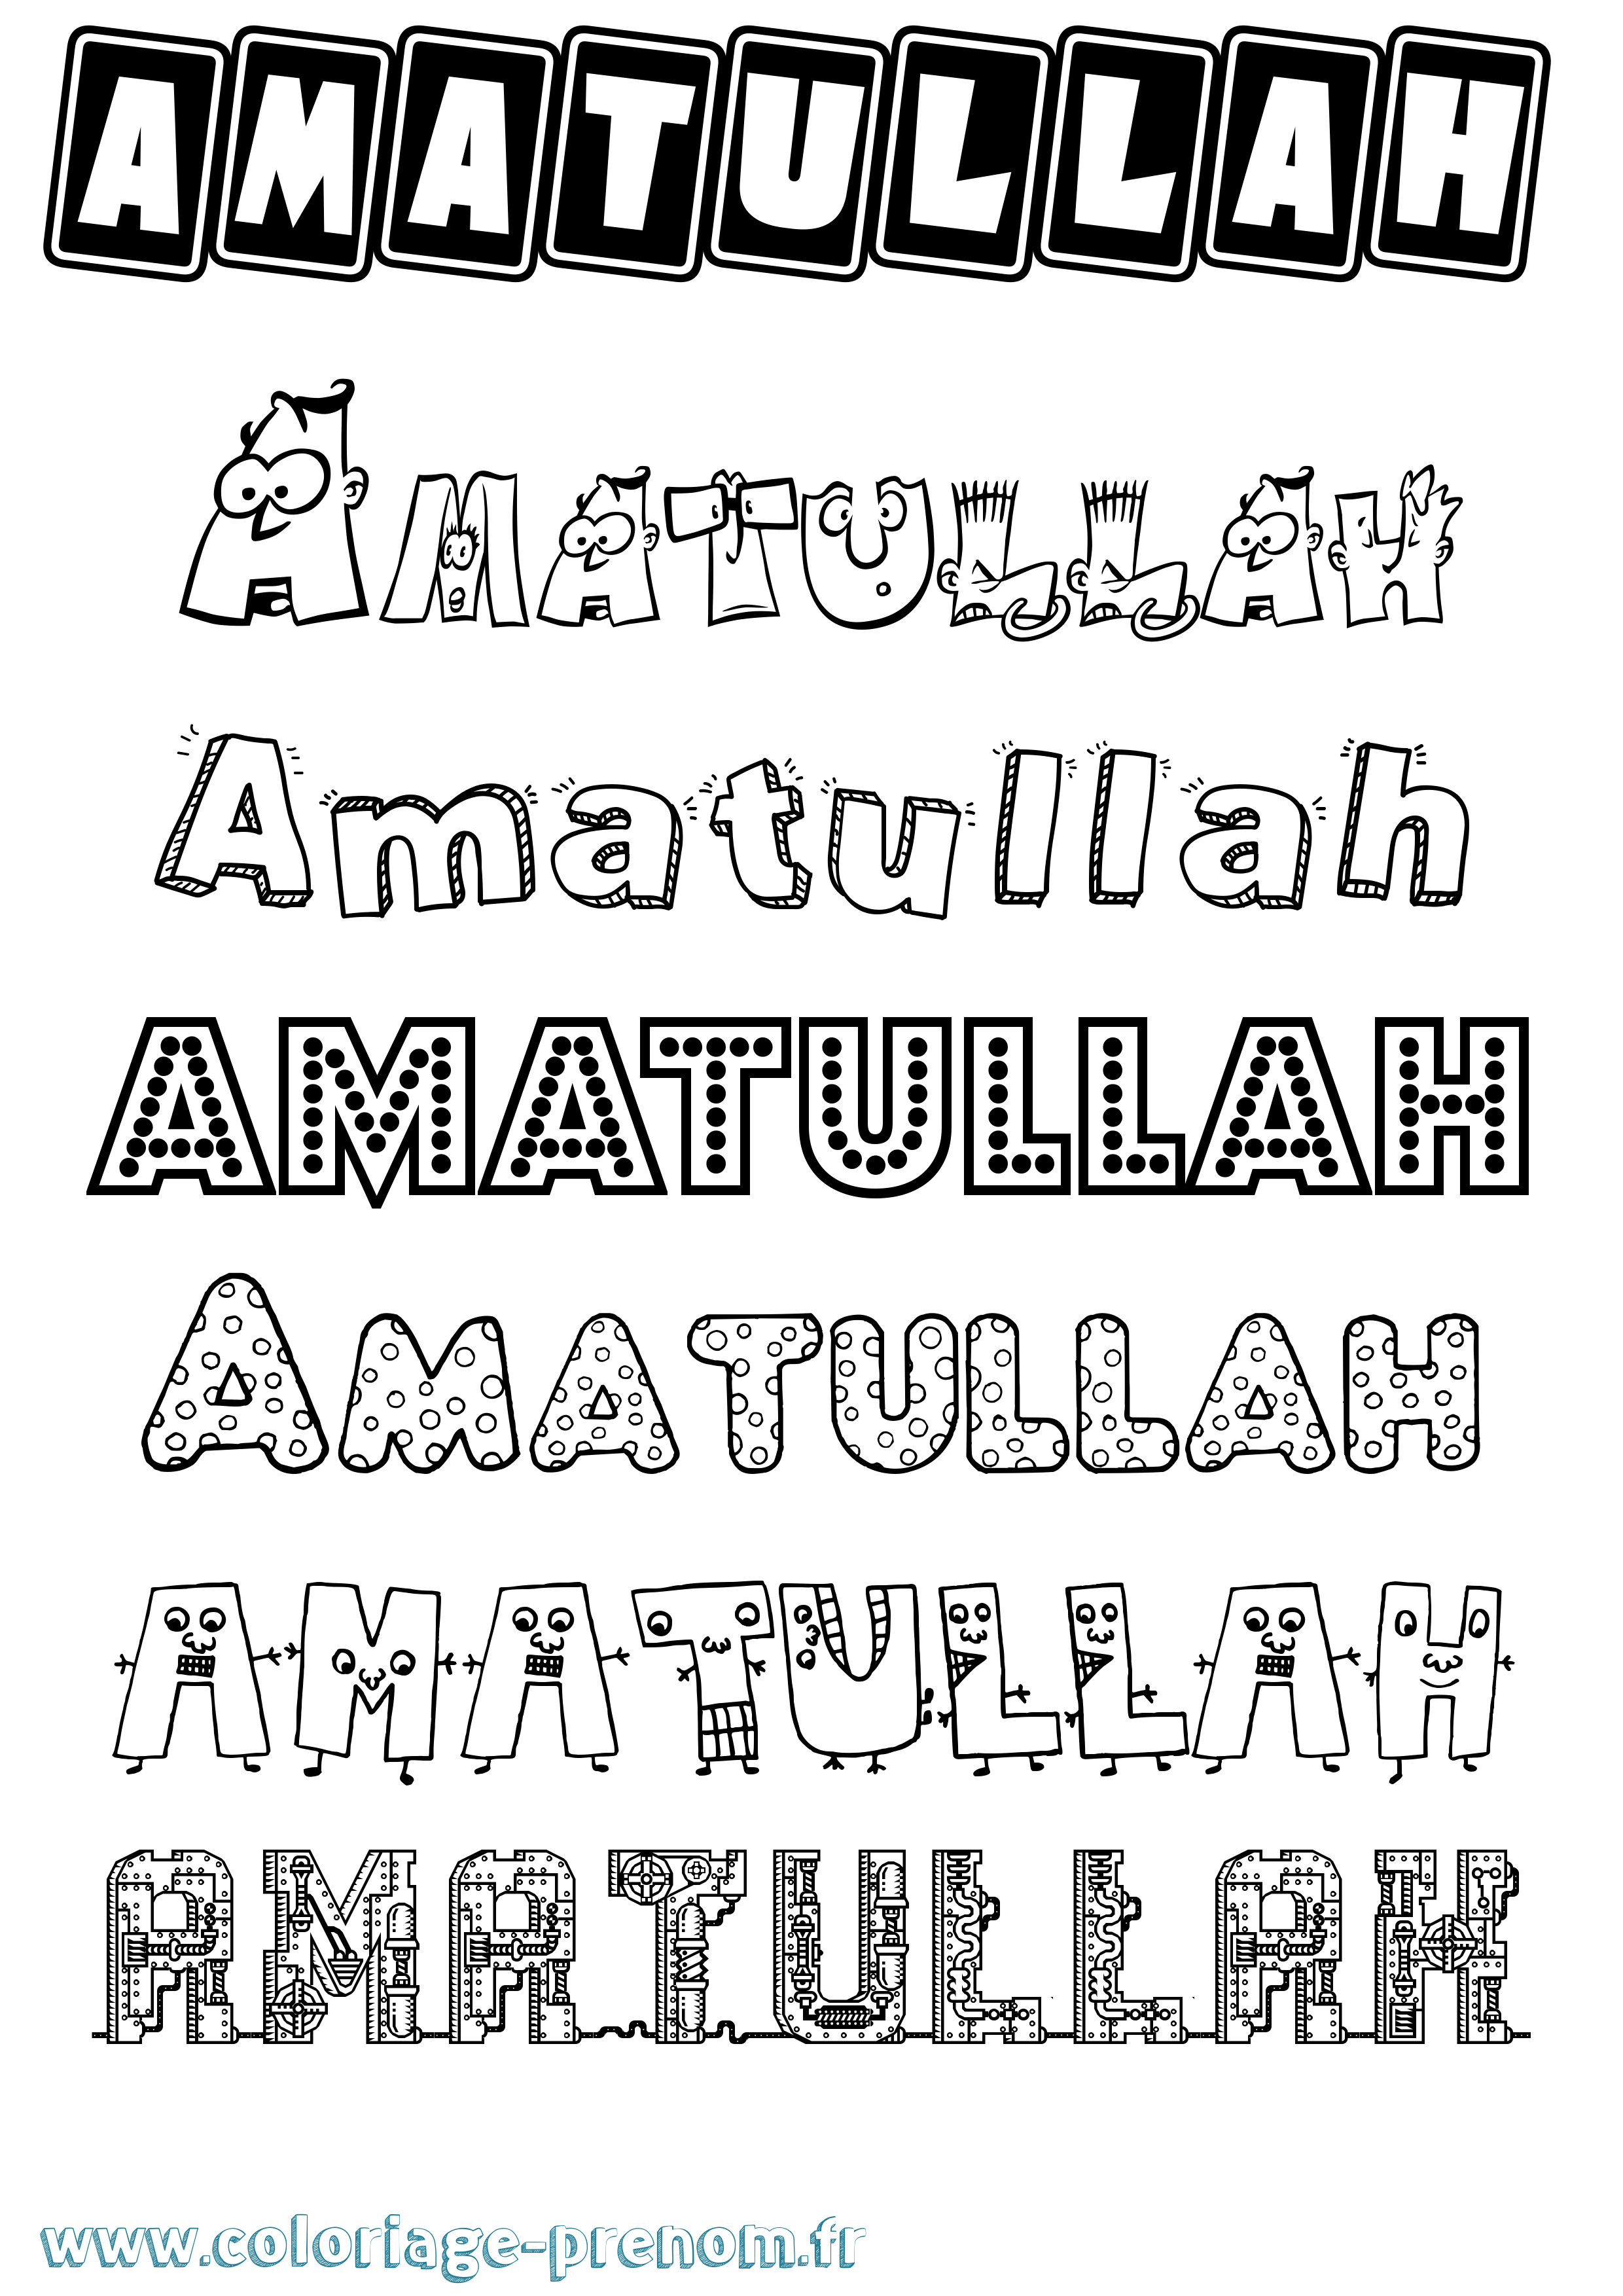 AMATULLAH
AMATULLAH
Amatullah
AMATULLAH
AMATULLAH
AMATULLAH
AMATULLAH
www.coloriage-prenom.fr